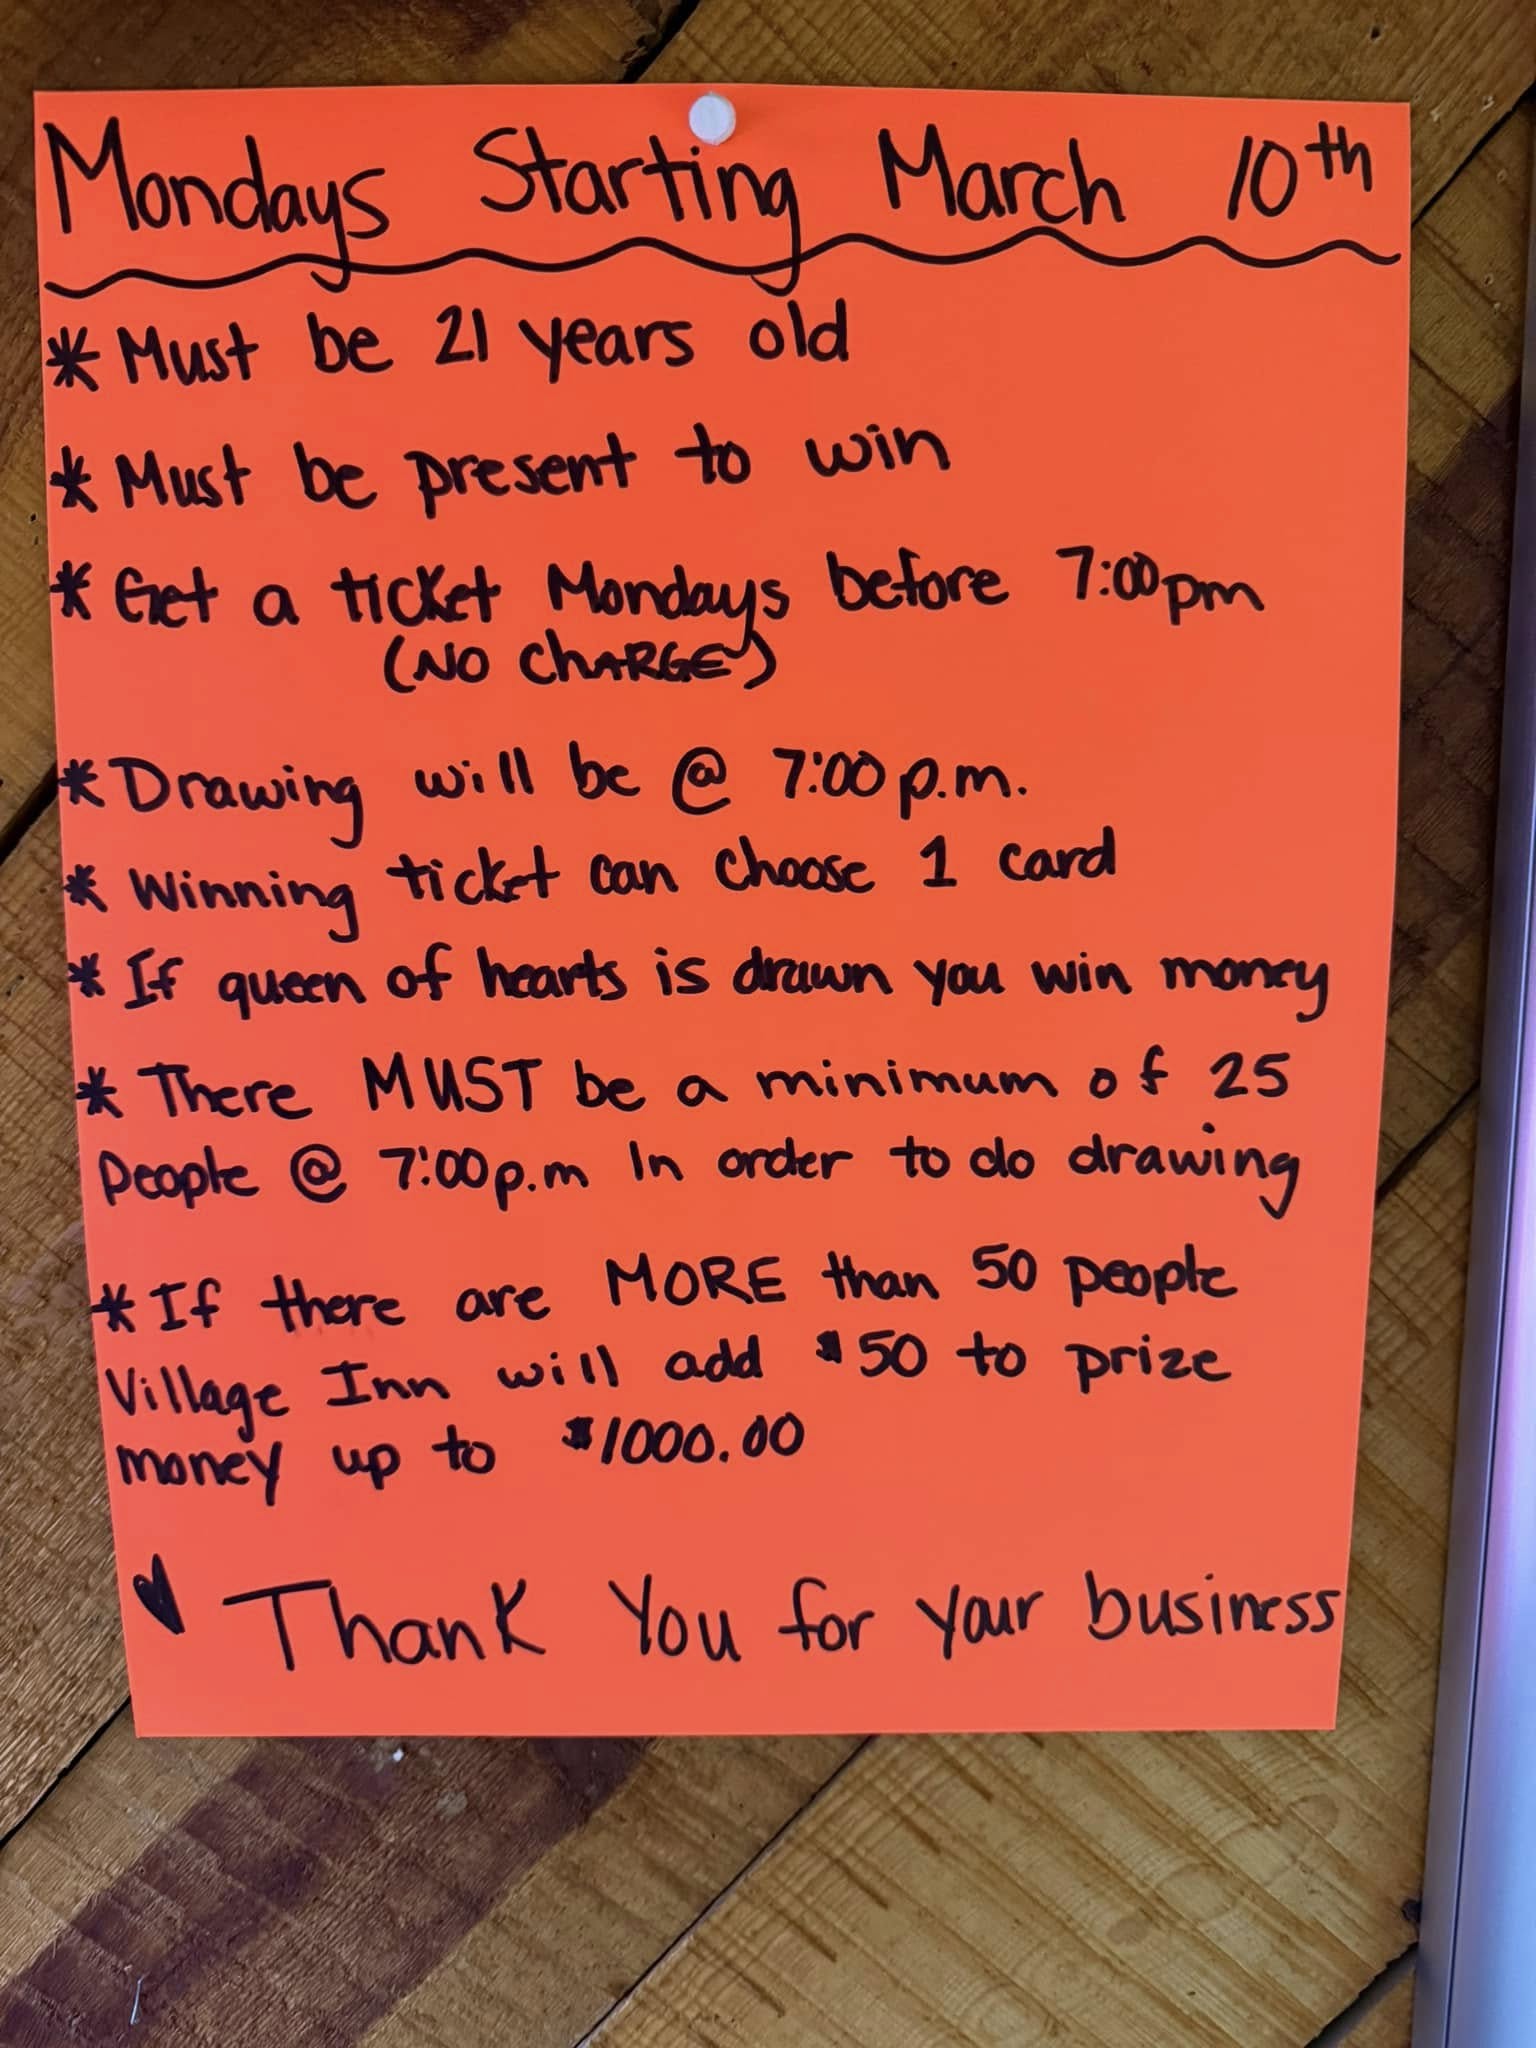 Mondays Starting March 10th
* Must be 21 years old
* Must be present to win
* Get a ticket Mondays before 7:00pm
(NO ChARGE)
* Drawing will be @ 7:00 p.m.
* Winning ticket can choose 1 card
* If queen of hearts is drawn you win money
* There MUST be a minimum of 25
People @ 7:00p.m In order to do drawing
* If there are MORE than 50 people
Village Inn will add $50 to prize
money up to $1000.00
♥ Thank You for your business